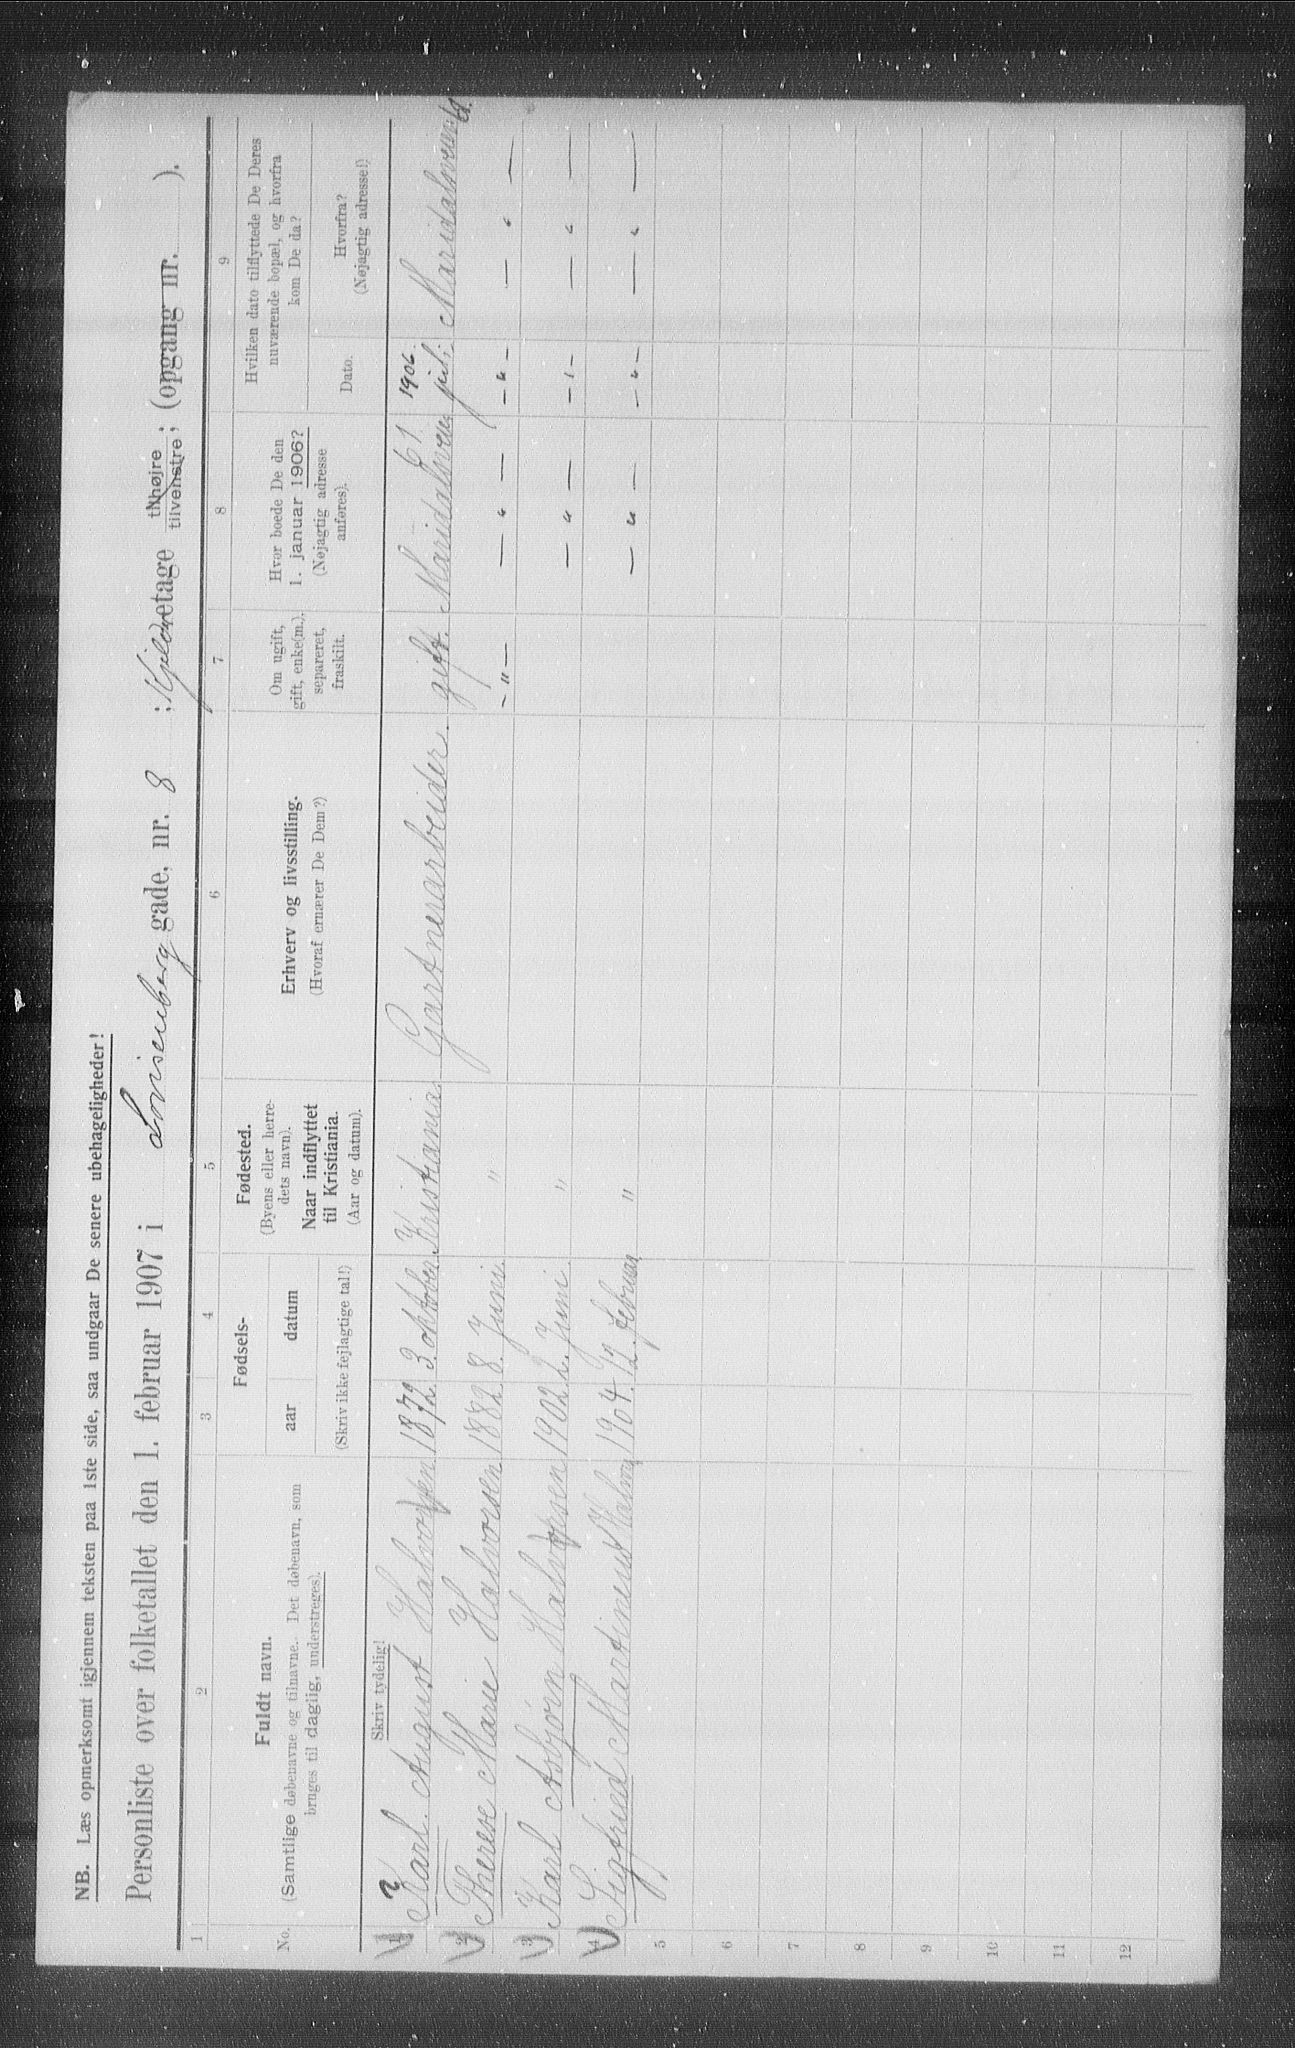 NB. Læs opmerksomt igjennem teksten paa 1ste side, saa undgaar De senere ubehageligheder!
Personliste over folketallet den 1. februar 1907 i Lovisenberg gade, nr. 8 ; Kjelder etage til højre tilvenstre ; (opgang nr. ).
1 2 3 4 5 6 7 8 9
No.
Fuldt navn.
(Samtlige døbenavne og tilnavne. Det døbenavn, som
bruges til daglig, understreges).
Fødsels-
aar datum
(Skriv ikke fejlagtige tal!)
Fødested.
(Byens eller herre-
dets navn).
Naar indflyttet
til Kristiania.
(Aar og datum).
Erhverv og livsstilling.
(Hvoraf ernærer De Dem?)
Om ugift,
gift, enke(m.),
separeret,
fraskilt.
Hvor boede De den
1. januar 1906?
(Nøjagtig adresse
anføres).
Hvilken dato tilflyttede De Deres
nuværende bopæl, og hvorfra
kom De da?
Dato.
Hvorfra?
(Nøjagtig adresse!)
Skriv tydelig!
1 Karl August Halvorsen 1872 3. oktober Kristiania Gartnerarbeider. gift. Maridalsveien 61 1906. juli Maridalsveien 61.
2 Therese Marie Halvorsen 1882 8. Juni. " — " — — " — — " — — " —
3 Karl Asbjørn Halvorsen 1902 2. Juni. " — " — — " — — " —
4 Sigfrid Martinius 1904. 12. februar " — " — — " — — " —
5
6
7
8
9
10
11
12